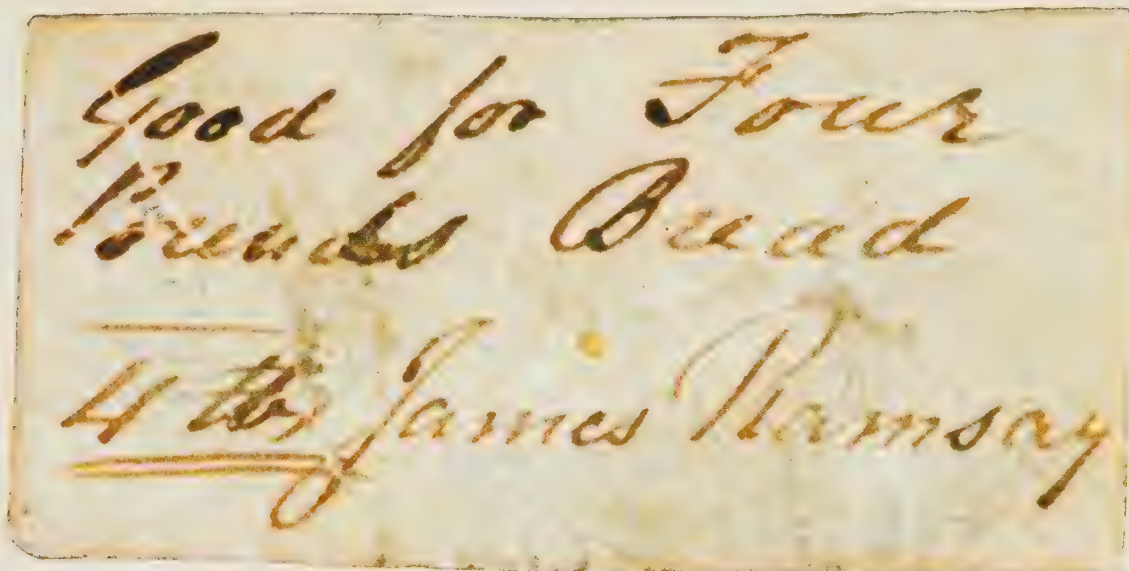 Good for Four
Pounds Bread
4 lbs James Ramsay